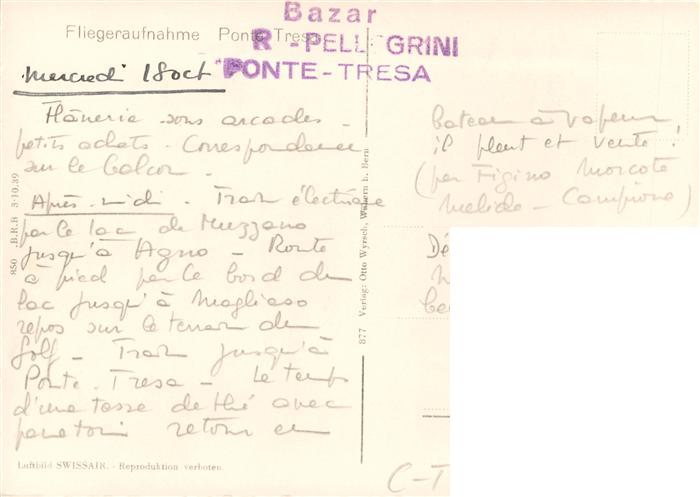 Bazar
Fliegeraufnahme Ponte Tresa
R - PELL GRINI
PONTE-TRESA
Mercredi 18 oct
Flânerie sous arcades -
petits achats - Correspondance
sur le balcon -
Après-midi - Tram électrique
par le lac de Muzzano
jusqu'à Agno - Route
à pied par le bord du
lac jusqu'à Magliaso
repos sur le terrain de
Golf - Tram jusqu'à
Ponte-Tresa - Le temps
d'une tasse de thé avec
retour en
bateau à vapeur,
il pleut et vente !
(par Figino Morcote
Melide - Campione)
850 .B.R.B 3.10.39
877 Verlag: Otto Wyrsch, Wabern b. Bern
Dé
C-T
Luftbild SWISSAIR. - Reproduktion verboten.